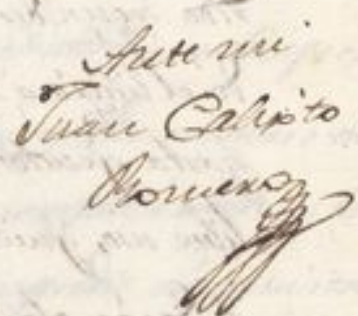 Ante mi
Juan Calixto
Romero